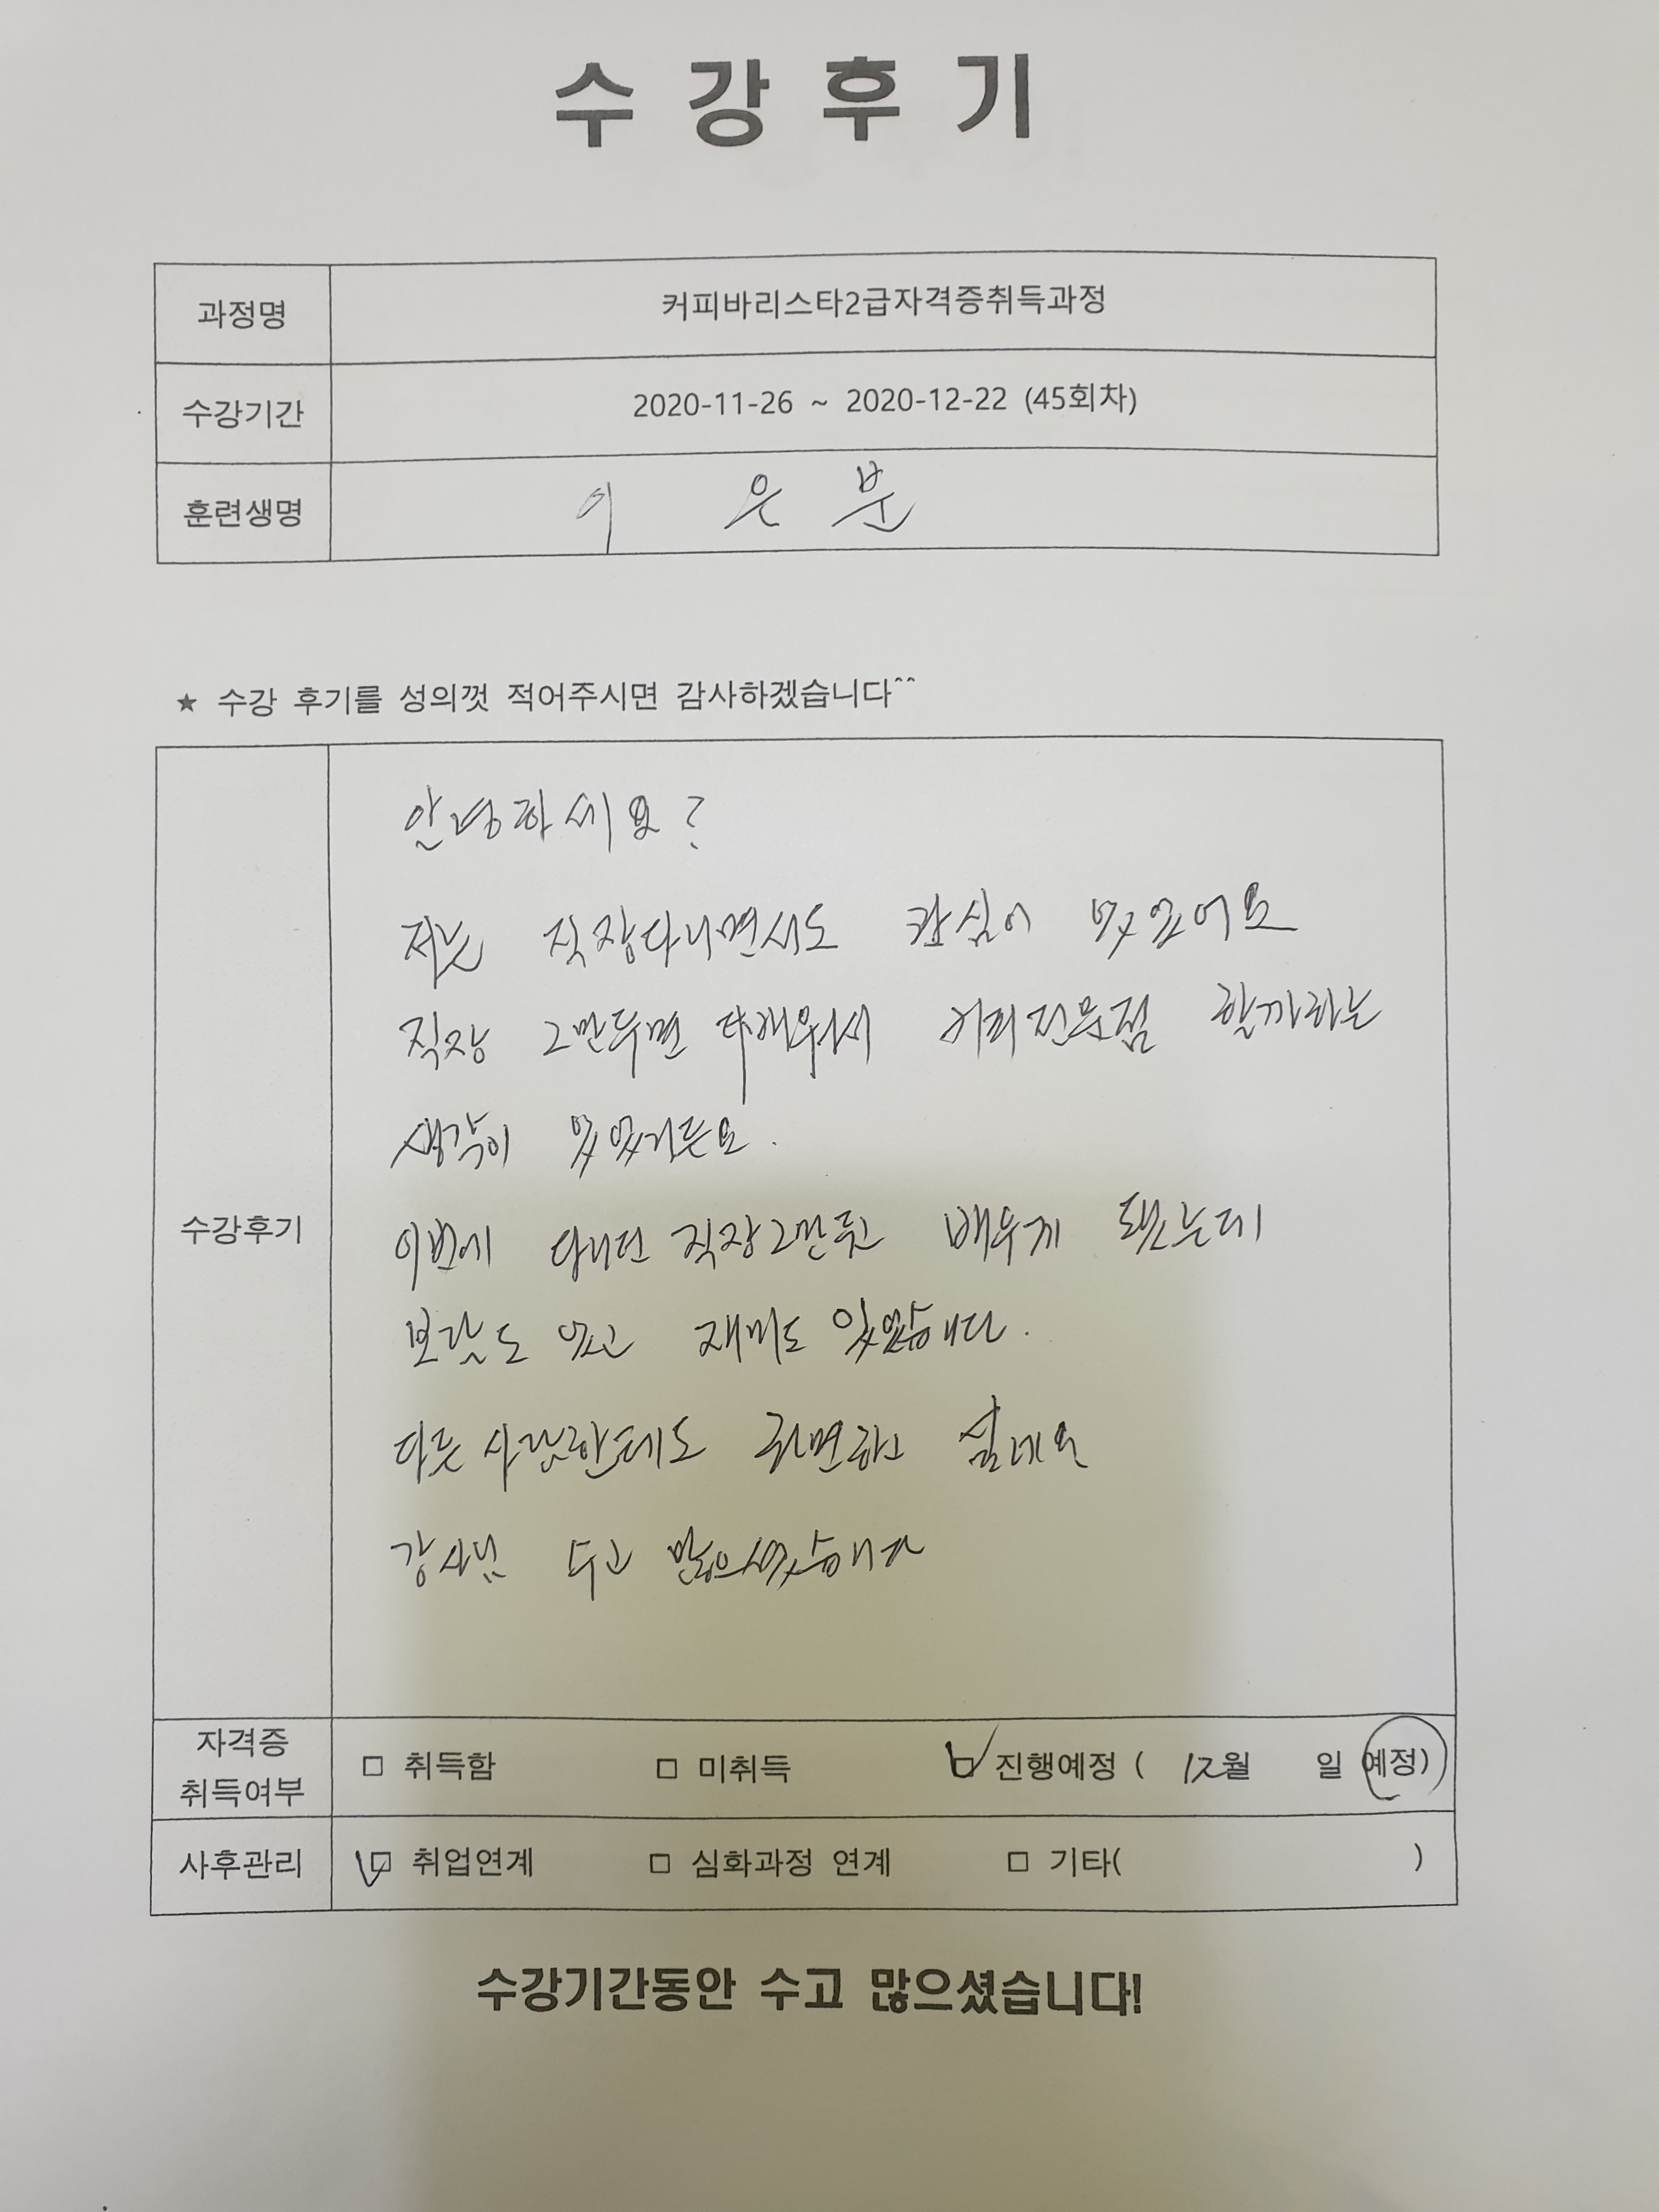 수강후기
과정명 커피바리스타2급자격증취득과정
수강기간 2020-11-26 ~ 2020-12-22 (45회차)
훈련생명 이 은 분
★ 수강 후기를 성의껏 적어주시면 감사하겠습니다^^
수강후기
안녕하세요?
저는 직장다니면서도 관심이 있었어요
직장 그만두면 다배워서 커피전문점 할까하는
생각이 있었거든요.
이번에 다니던 직장그만두고 배우게 됐는데
보람도 있고 재미도 있었습니다.
다른 사람한테도 권면하고 싶네요
강사님 수고 많으셨습니다
자격증 취득여부 □ 취득함 □ 미취득 ☑ 진행예정 ( 12월 일 예정)
사후관리 ☑ 취업연계 □ 심화과정 연계 □ 기타( )
수강기간동안 수고 많으셨습니다!